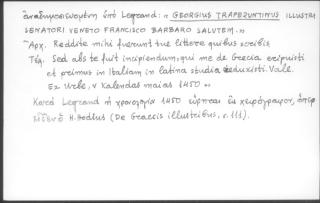 ἀναδημοσιευομένη ὑπὸ Legrand: « GEORGIUS TRAPEZUNTINUS ILLUSTRI
SENATORI VENETO FRANCISCO BARBARO SALUTEM.»
Ἀρχ. Reddite mihi fuerunt tue littere quibus scribis
Τέλ. Sed abs te fuit incipiendum, qui me de Grecia eripuisti
et primus in Italiam in latina studia eduxisti. Vale.
Ex Urbe, V Kalendas maias 1450 »
Κατὰ Legrand ἡ χρονολογία 1450 εὕρηται ἐν χειρόγραφον, ὅπερ
H. Hodius (De Graecis illustribus, σ. 111).